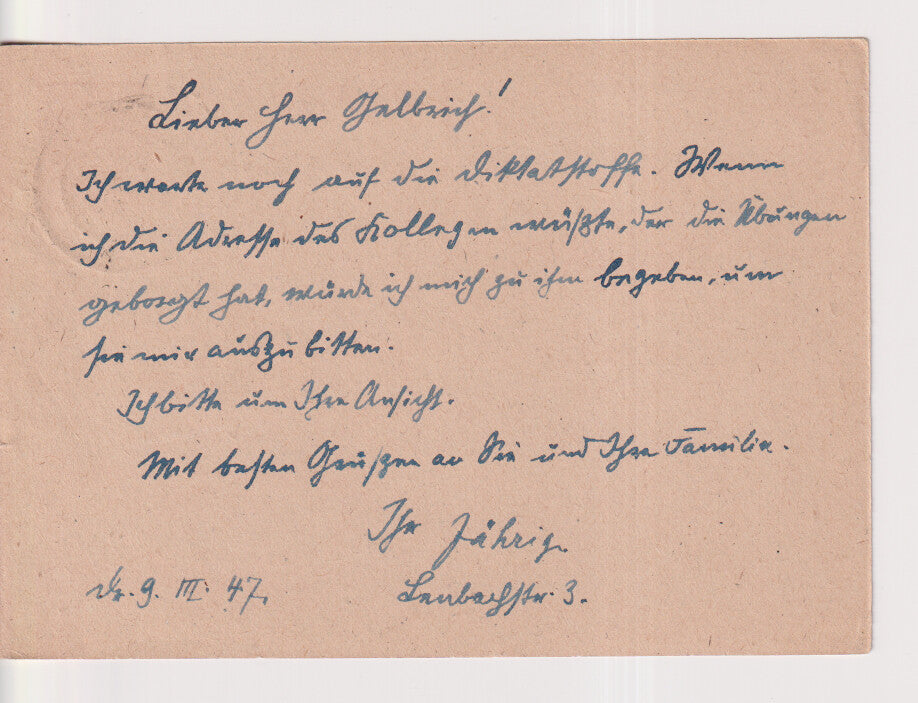 Lieber Herr Gelbrich!
Ich warte noch auf die Diktatstoffe. Wenn
ich die Adresse des Kollegen wüßte, der die Übungen
geborgt hat, würde ich mich zu ihm begeben, um
sie mir auszubitten.
Ich bitte um Ihre Ansicht.
Mit besten Grüßen an Sie und Ihre Familie.
Ihr Jährig.
Dr. 9. III. 47.
Lenbachstr. 3.